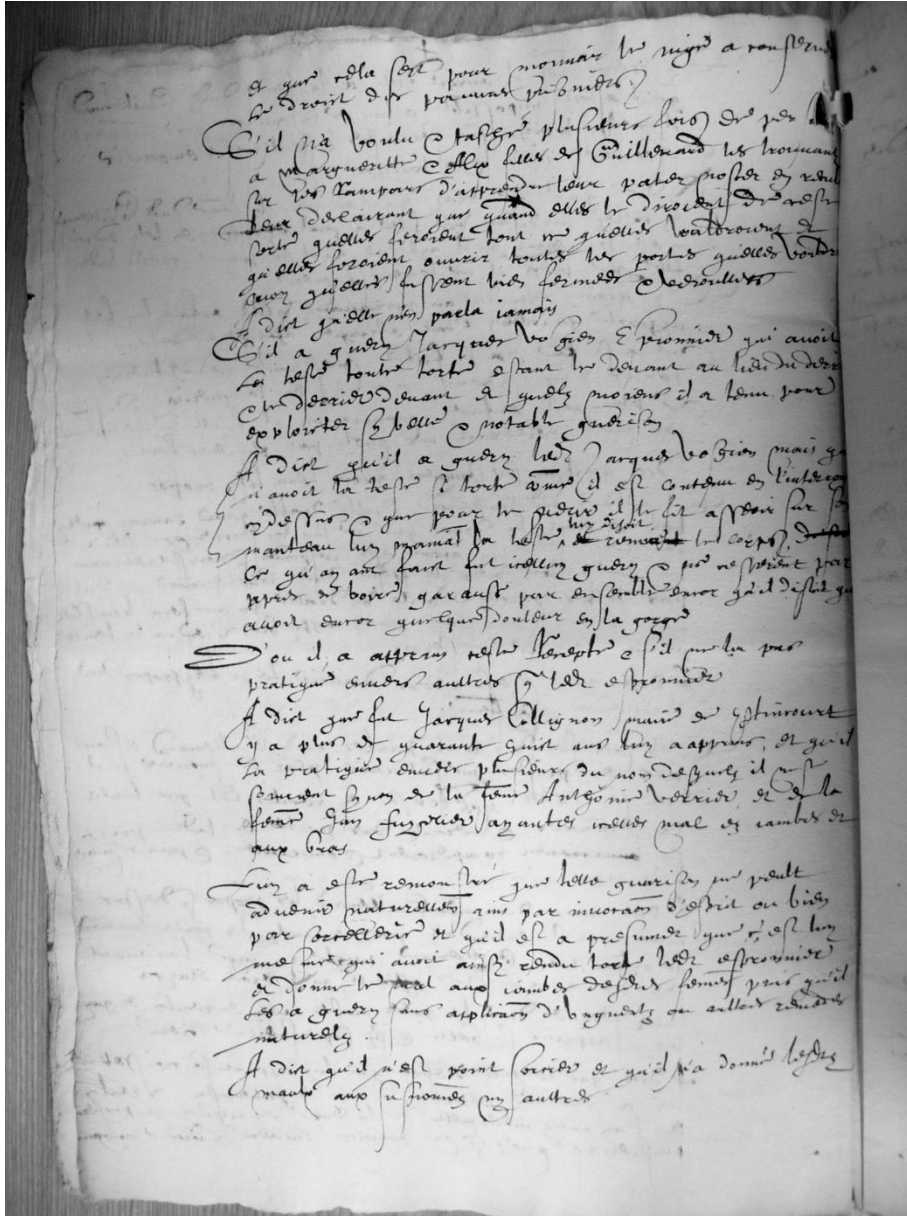 et que cela sert pour monnoir le juge a conserver
le droict des pauvres prisonniers
S'il n'a voulu & tasché plusieurs fois de per
a Margueritte & Alix filles de Guillemard les trouvant
sur les rampars d'apprendre leur pater noster en
leur declairant que quand elles le diroient de ceste
sorte quelles feroient tout ce quelles vouldroient et
qu'elles feroient ouvrir touttes les portes quelles vouldr
encor qu'elles fussent bien fermées & verroullées
A dict qu'elle n'en parla iamais
S'il a guery Jacques Vosgien Espronnier qui avoit
la teste toutte torte estant le devant au lieu du derr
& le derrier devant et quelz moiens il a tenu pour
exploicter sy belle & notable guerison
A dict qu'il a guery ledt Jacques Vosgien mais
n'avoit la teste si torte come il est contenu en l'interro
cydessus & que pour le guerir il le fit asseoir sur son
manteau luy prenant la teste luy disoit le corps
ce qu'aiant faict fut icelluy guery & ne cesserent par
apres de boire garausse par ensemble encor qu'il disoit
avoit encor quelque douleur en la gorge
D'ou il a apprins ceste recepte & s'il ne la pas
pratiqué envers aultres que ledt espronnier
A dict que fut Jacques Collignon maire de
y a plus de quarante huict ans luy a apprins, et qu'il
la pratiquée envers plusieurs du nom desquelz il ne se
souvient synon de la feme Anthoine Verrier et de la
feme Jan ayantes icelles mal es iambes et
aux bras
Luy a esté remonstré que telle guarison ne peult
advenir naturellemt ains par invocaon d'esprit ou bien
par sorcellerie et qu'il est a presumer que c'est luy
mesme qui avoit ainsy rendu torte ledt espronnier
et donné le mal aux iambes desdtes femes puis qu'il
les a guery sans applicaon d'unguentz ou aultres remedes
naturelz
A dict qu'il n'est point sorcier et qu'il n'a donné lesdtz
maulx aux susnommez ny aultres